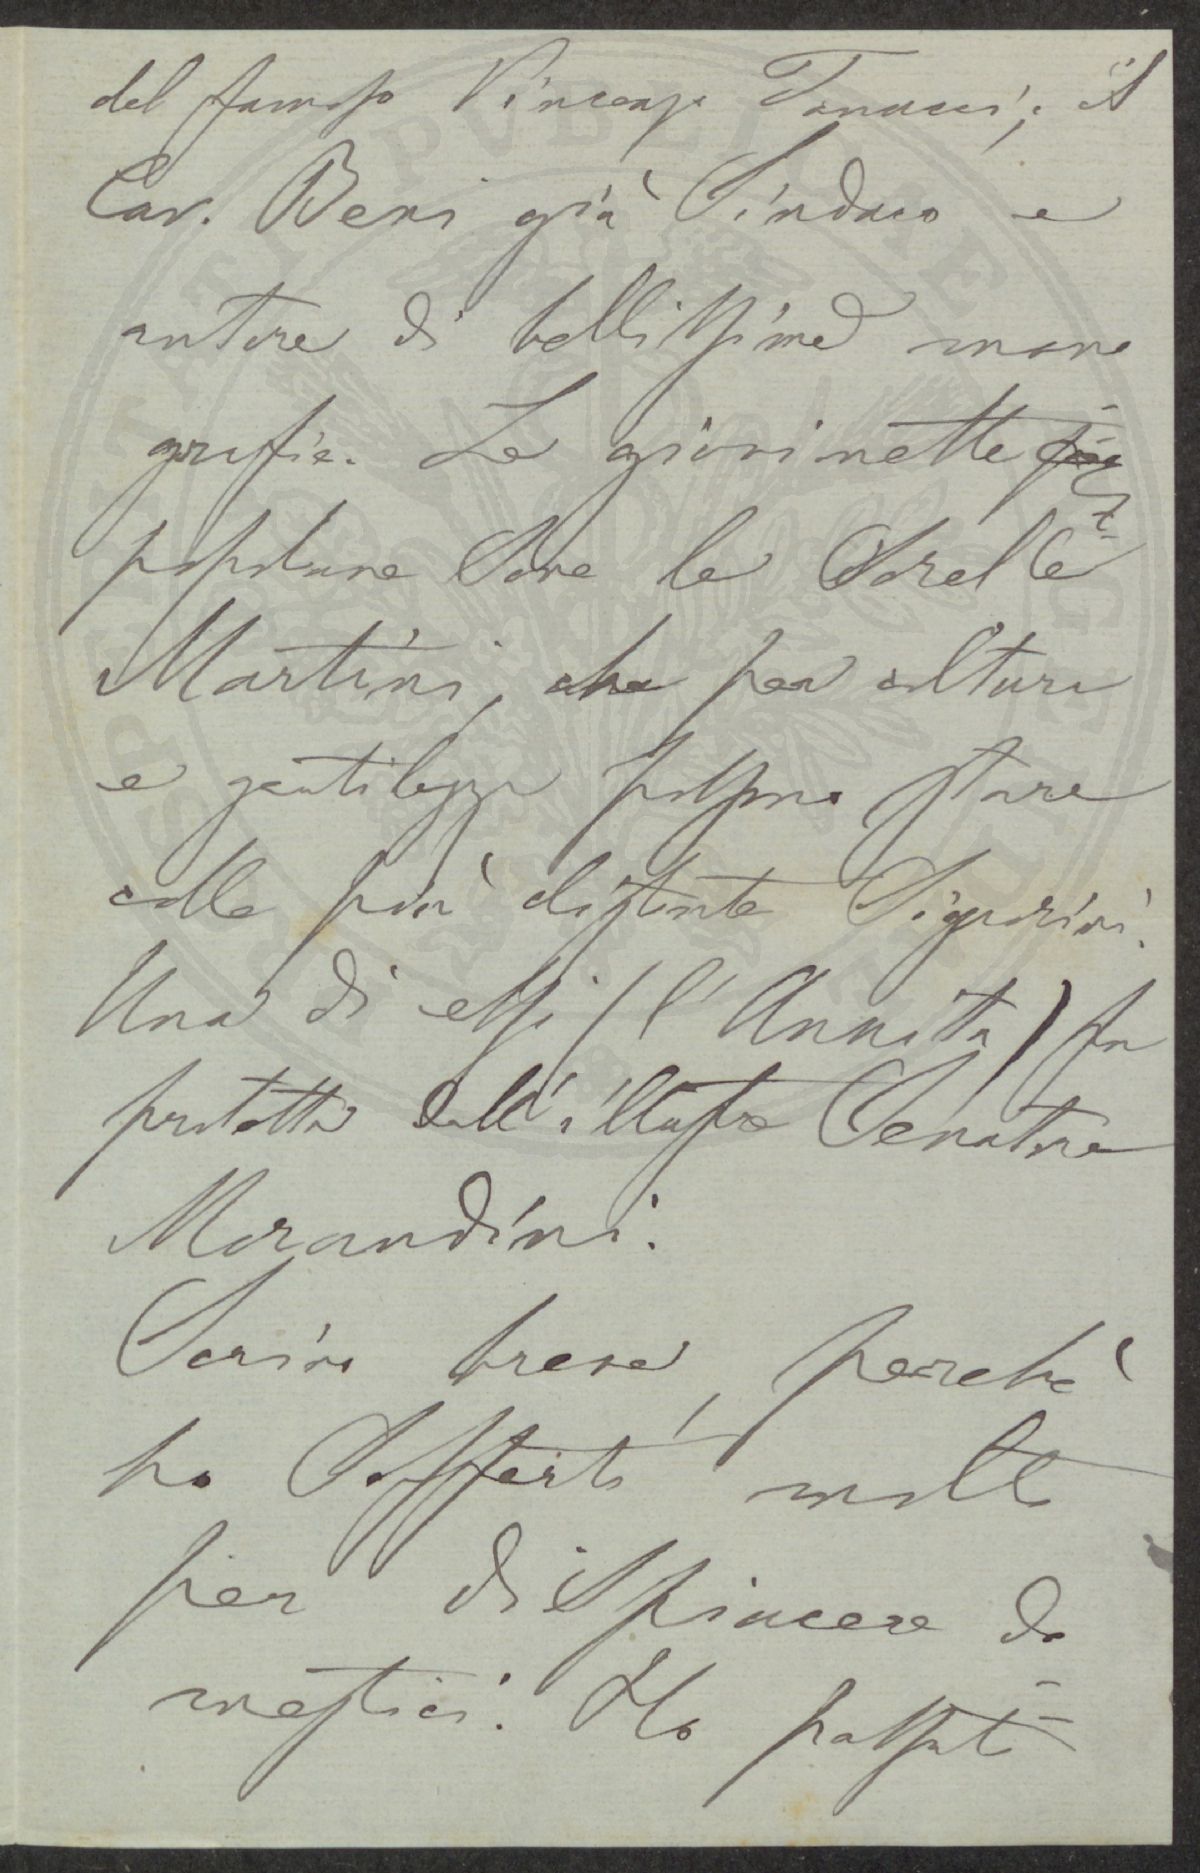 del famoso Vincenzo Tanucci; il
Cav. Beni già Sindaco e
autore di bellissime mono
grafie. Le giovinette
popolane sono le Sorelle
Martini, che per coltura
e gentilezza possono stare
colle più distinte Signorine.
Una di esse (l'Annita) fu
protetta dall'illustre Senatore
Morandini.
Scrivo breve, perchè
ho sofferto molto
per dispiacere do
mestici. Ho passato